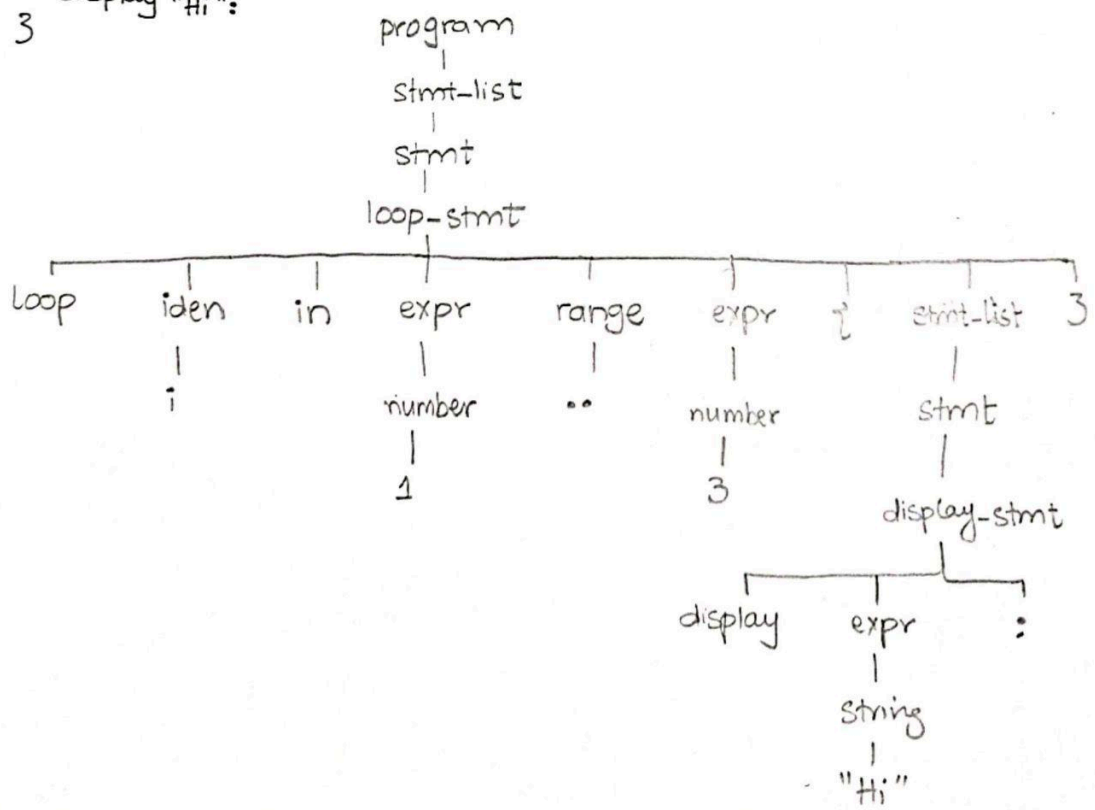 display "Hi":
3
program
stmt-list
stmt
loop-stmt
loop iden in expr range expr { stmt-list }
i number .. number stmt
1 3 display-stmt
display expr :
string
"Hi"